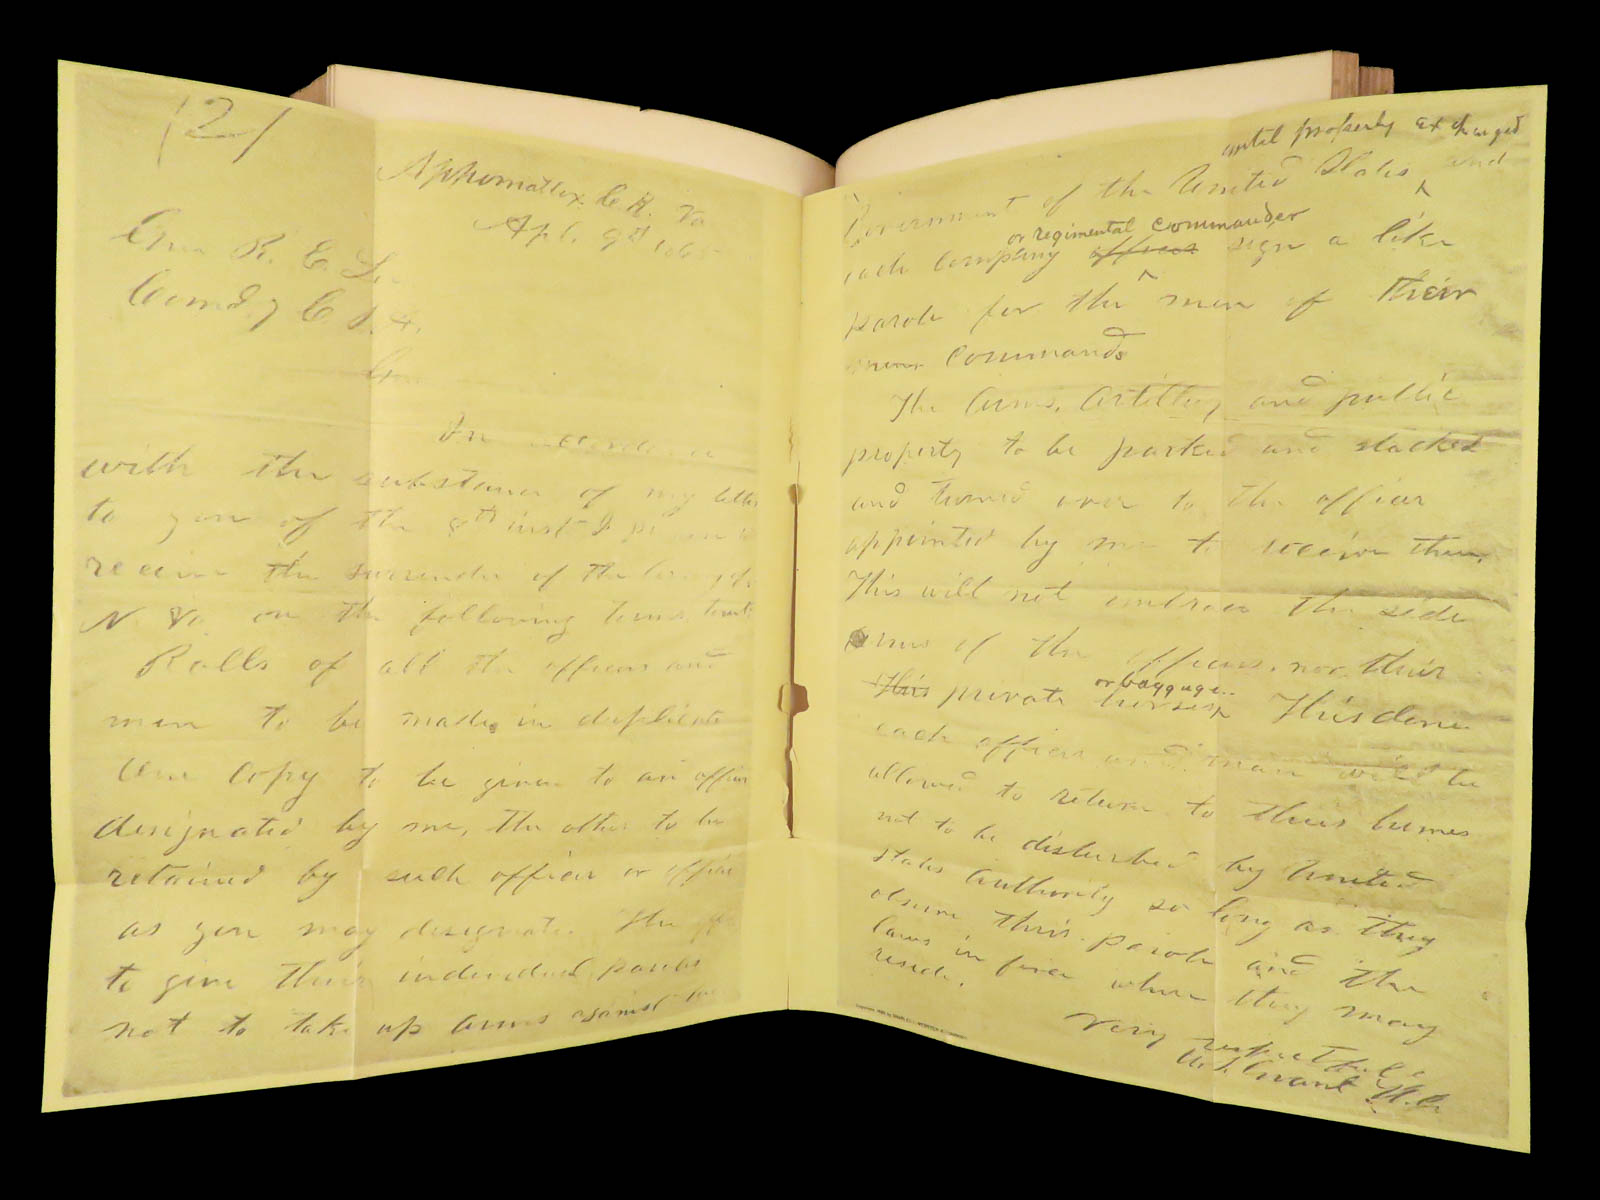 (2)
Appomattox C.H. Va
Apl. 9th 1865
Gen R. E. Lee
Comd.g C.S.A.
Gen
In accordance
with the substance of my letter
to you of the 8th inst I propose to
receive the surrender of the Army of
N. Va on the following terms, towit:
Rolls of all the officers and
men to be made in duplicate
One copy to be given to an officer
designated by me, the other to be
retained by such officer or officers
as you may designate. The officers
to give their individual paroles
not to take up arms against the
until properly exchanged
Government of the United States and
or regimental commander
each company officer sign a like
parole for the men of their
commands
The Arms, Artillery and public
property to be parked and stacked
and turned over to the officer
appointed by me to receive them.
This will not embrace the side
Arms of the officers, nor their
or baggage.
This private horses This done
each officer and man will be
allowed to return to their homes
not to be disturbed by United
States Authority so long as they
observe their parole and the
laws in force where they may
reside.
Very respectfully
U.S. Grant Lt. Gn